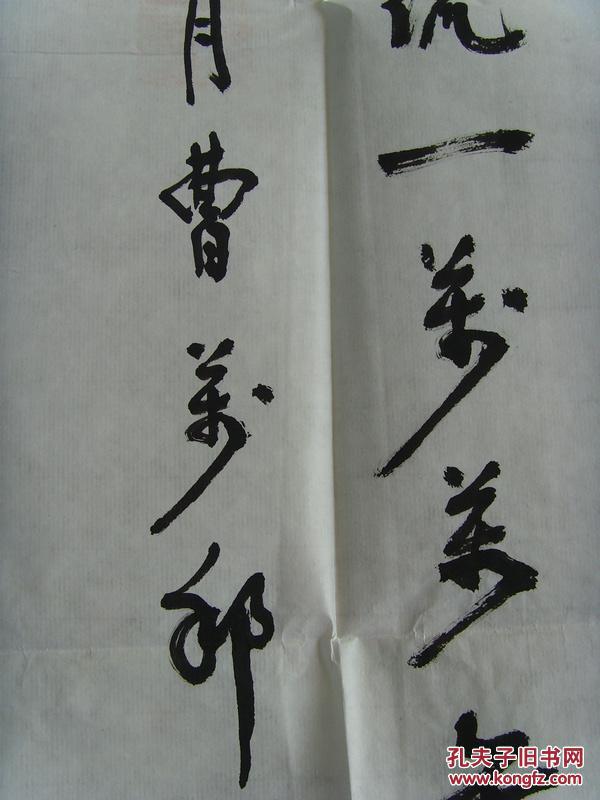 统一萬萬
月曹萬邦
孔夫子旧书网
www.kongfz.com